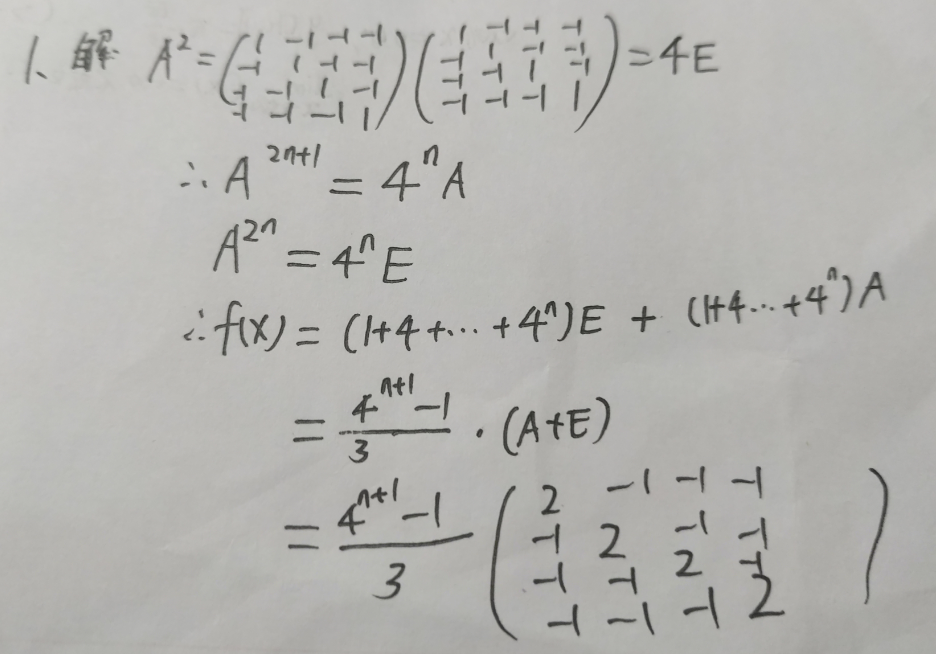 1、解 A² = (1 -1 -1 -1; -1 1 -1 -1; -1 -1 1 -1; -1 -1 -1 1) (1 -1 -1 -1; -1 1 -1 -1; -1 -1 1 -1; -1 -1 -1 1) = 4E
∴ A^{2n+1} = 4^n A
A^{2n} = 4^n E
∴ f(x) = (1+4+…+4^n)E + (1+4…+4^n)A
= \frac{4^{n+1}-1}{3} · (A+E)
= \frac{4^{n+1}-1}{3} (2 -1 -1 -1; -1 2 -1 -1; -1 -1 2 -1; -1 -1 -1 2)